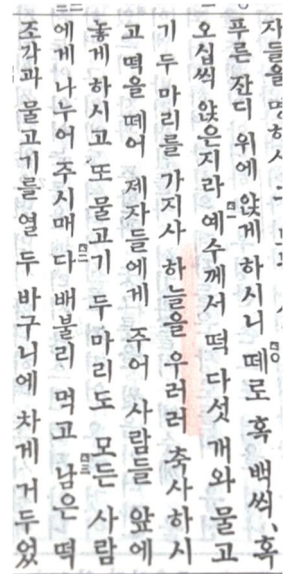 자들을
푸른 잔디 위에 앉게 하시니 四〇 떼로 혹 백씩、혹
오십씩 앉은지라 四一 예수께서 떡 다섯 개와 물고
기 두 마리를 가지사 하늘을 우러러 축사하시
고 떡을 떼어 제자들에게 주어 사람들 앞에
놓게 하시고 또 물고기 두 마리도 모든 사람
에게 나누어 주시매 四二 다 배불리 먹고 四三 남은 떡
조각과 물고기를 열 두 바구니에 차게 거두었